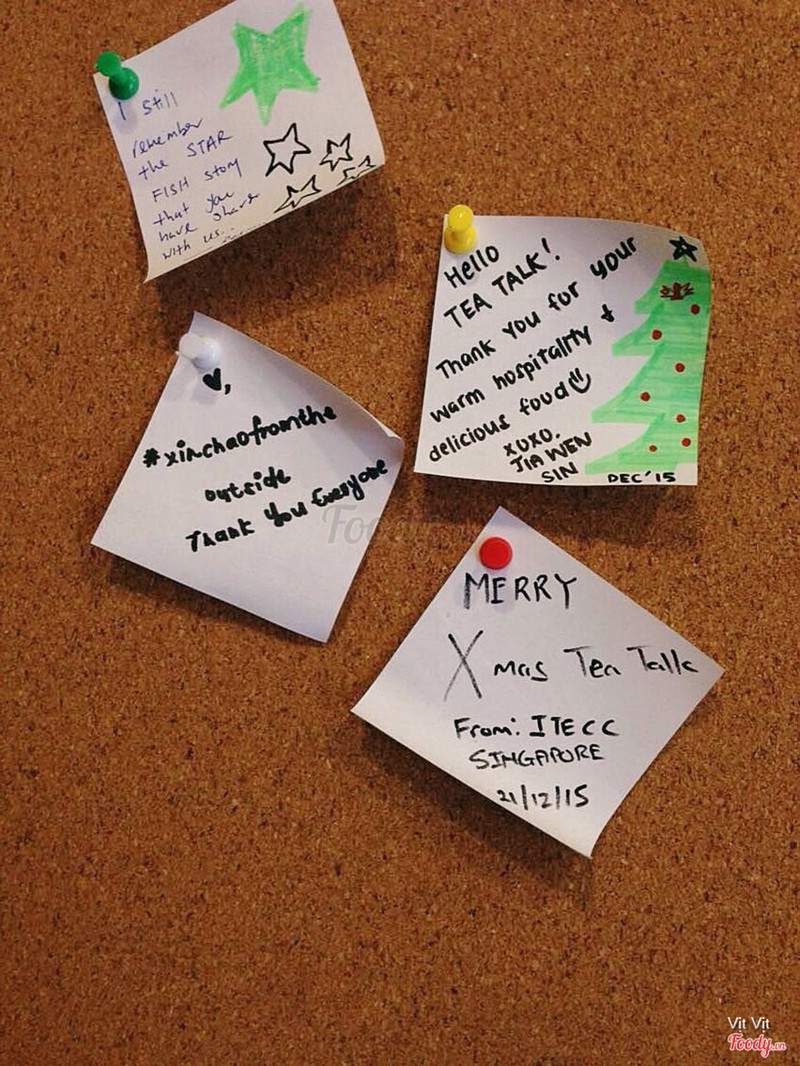 I still
remember
the STAR
FISH story
that you
have share
with us...
Hello
TEA TALK!
Thank you for your
warm hospitality &
delicious food
XOXO.
JIA WEN
SIN
DEC'15
♥,
#xinchaofromthe
outside
Thank You Everyone
MERRY
Xmas Tea Talk
From: ITECC
SINGAPORE
21/12/15
Foody
Vịt Vịt
Foody.vn